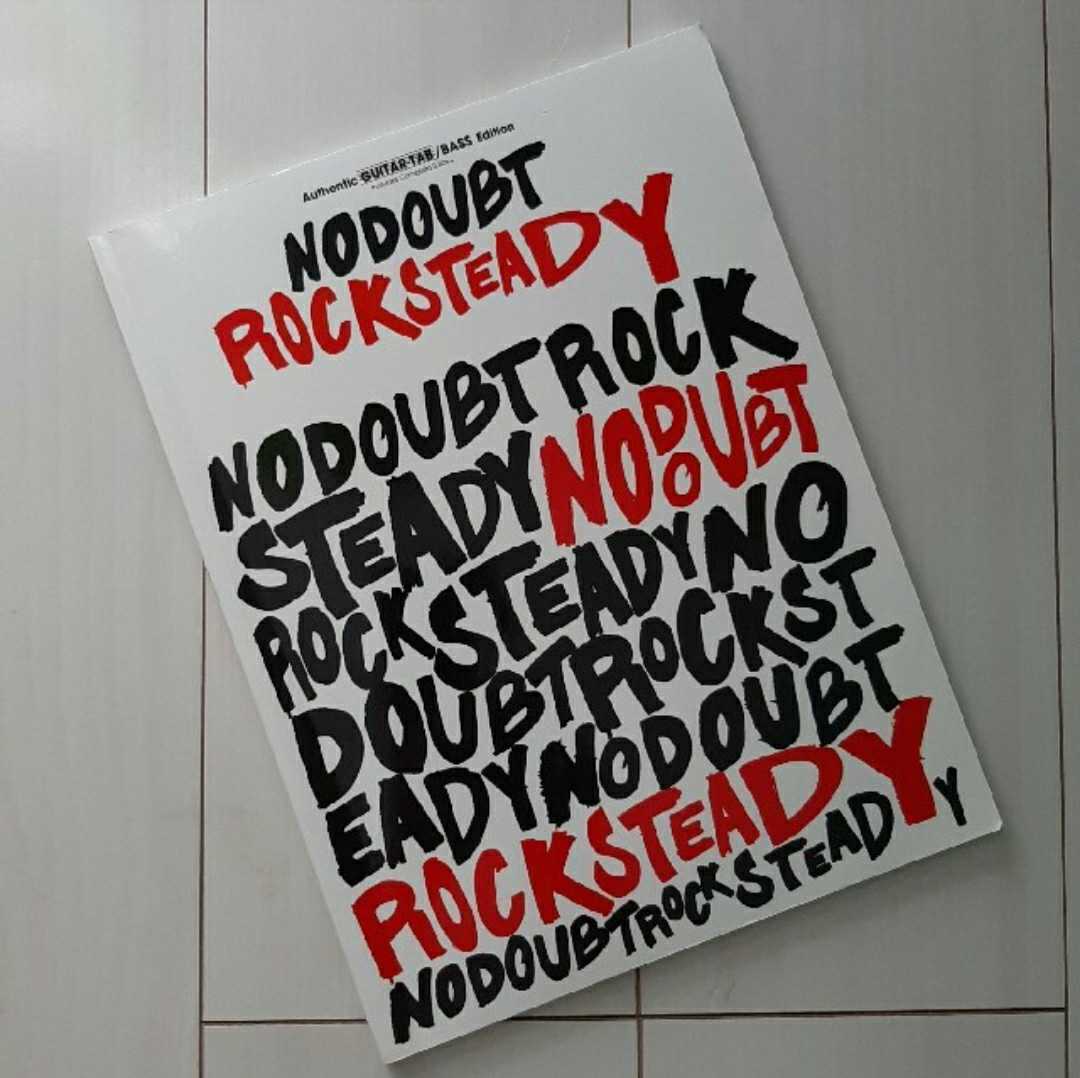 Authentic GUITAR-TAB/BASS Edition
NODOUBT
ROCKSTEADY
NODOUBTROCK
STEADYNODOUBT
ROCKSTEADYNO
DOUBTROCKST
EADYNODOUBT
ROCKSTEADY
NODOUBTROCKSTEADY